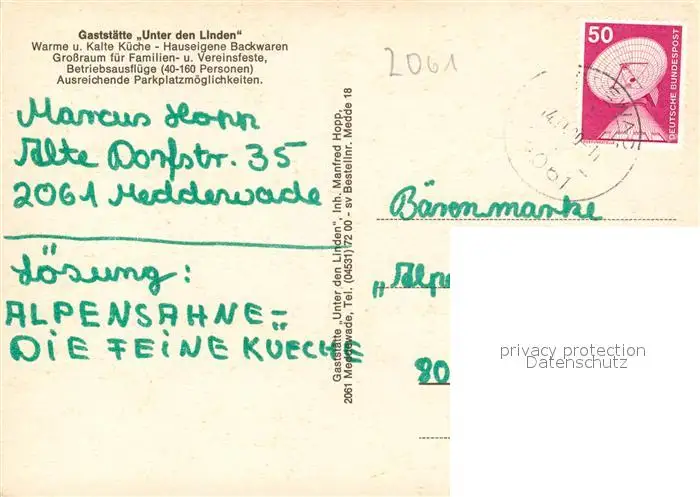 Gaststätte „Unter den Linden“
Warme u. Kalte Küche - Hauseigene Backwaren
Großraum für Familien- u. Vereinsfeste,
Betriebsausflüge (40-160 Personen)
Ausreichende Parkplatzmöglichkeiten.
Marcus Hopp
Alte Dorfstr. 35
2061 Meddewade
Lösung:
ALPENSAHNE-
DIE FEINE KUECHE
Gaststätte „Unter den Linden“, Inh. Manfred Hopp,
2061 Meddewade, Tel. (04531) 72 00 - sv Bestellnr. Medde 18
2061
50
DEUTSCHE BUNDESPOST
2061
Bärenmarke
„Alpe
80
privacy protection
Datenschutz